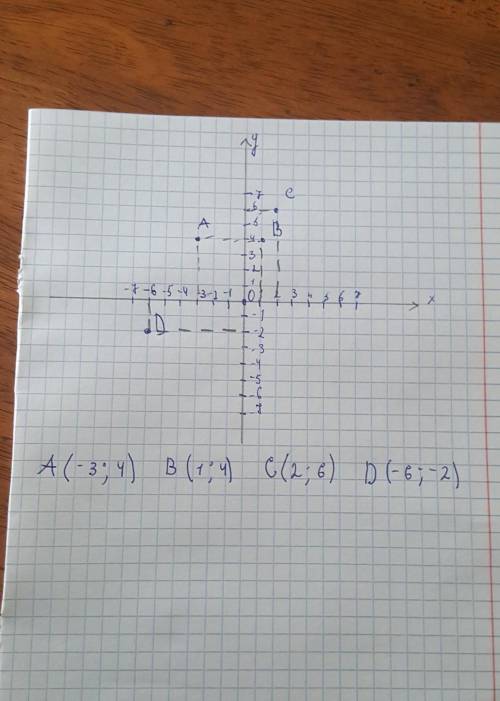 y
7
C
6
A
5
B
4
3
2
1
-7 -6 -5 -4 -3 -2 -1 0 2 3 4 5 6 7 x
-1
D
-2
-3
-4
-5
-6
-7
A (-3; 4) B (1; 4) C (2; 6) D (-6; -2)